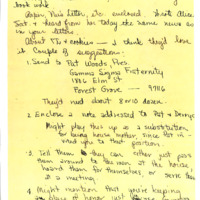 book ink
Papa, Pris letter, etc. enclosed. Sent Alice
Sat + heard from her today the same news as
in your letters.
About TG + cookies — I think they'd love
it. Couple of suggestions:
1. Send to Pat Woods, Pres.
Gamma Sigma Fraternity
1886 Elm St
Forest Grove — 97116
They'd need about 8 or 10 dozen
2. Enclose a note addressed to Pat +
Might play that up as a substitution
for being house mother, since Pat
you to that position.
3. Tell them they can either just pass
them around to the men at the house,
hoard them for themselves, or serve them
a meeting.
4. Might mention that you're keeping
place of honor just